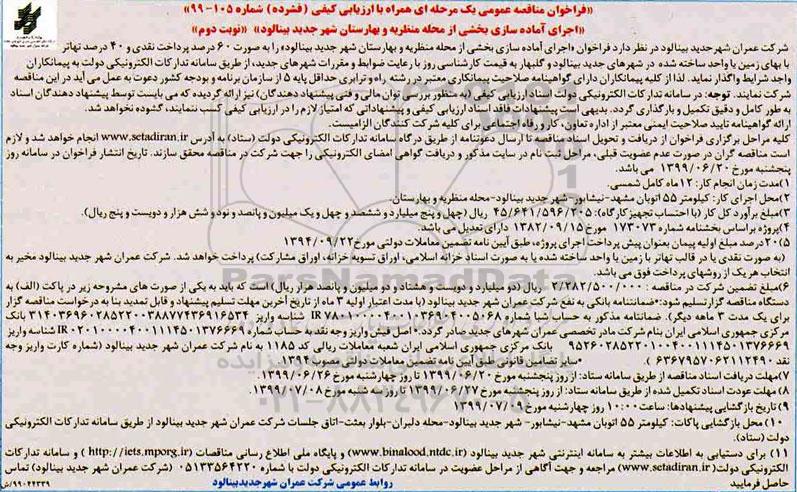 «فراخوان مناقصه عمومی یک مرحله ای همراه با ارزیابی کیفی (فشرده) شماره ۱۰۵-۹۹»
«اجرای آماده سازی بخشی از محله منظریه و بهارستان شهر جدید بینالود» «نوبت دوم»
شرکت عمران شهر جدید بینالود در نظر دارد فراخوان «اجرای آماده سازی بخشی از محله منظریه و بهارستان شهر جدید بینالود» را به صورت ۶۰ درصد پرداخت نقدی و ۴۰ درصد تهاتر
با بهای زمین یا واحد ساخته شده در شهرهای جدید بینالود و گلبهار به قیمت کارشناسی روز با رعایت ضوابط و مقررات شهرهای جدید، از طریق سامانه تدارکات الکترونیکی دولت به پیمانکاران
واجد شرایط واگذار نماید. لذا از کلیه پیمانکاران دارای گواهینامه صلاحیت پیمانکاری معتبر در رشته راه و ترابری حداقل پایه ۵ از سازمان برنامه و بودجه کشور دعوت به عمل می آید در این مناقصه
شرکت نمایند. توجه: در سامانه تدارکات الکترونیکی دولت اسناد ارزیابی کیفی (به منظور بررسی توان مالی و فنی پیشنهاد دهندگان) نیز ارائه گردیده که می بایست توسط پیشنهاد دهندگان اسناد
به طور کامل و دقیق تکمیل و بارگذاری گردد. بدیهی است پیشنهادات فاقد اسناد ارزیابی کیفی و پیشنهاداتی که امتیاز لازم را در ارزیابی کیفی کسب ننمایند، گشوده نخواهد شد.
ارائه گواهینامه تایید صلاحیت ایمنی معتبر از اداره تعاون، کار و رفاه اجتماعی برای کلیه شرکت کنندگان الزامیست.
کلیه مراحل برگزاری فراخوان از دریافت و تحویل اسناد مناقصه تا ارسال دعوتنامه از طریق درگاه سامانه تدارکات الکترونیکی دولت (ستاد) به آدرس www.setadiran.ir انجام خواهد شد و لازم
است مناقصه گران در صورت عدم عضویت قبلی، مراحل ثبت نام در سایت مذکور و دریافت گواهی امضای الکترونیکی را جهت شرکت در مناقصه محقق سازند. تاریخ انتشار فراخوان در سامانه روز
پنجشنبه مورخ ۱۳۹۹/۰۶/۲۰ می باشد.
۱)مدت زمان انجام کار: ۱۲ ماه کامل شمسی.
۲)محل اجرای کار: کیلومتر ۵۵ اتوبان مشهد-نیشابور- شهر جدید بینالود-محله منظریه و بهارستان.
۳)مبلغ برآورد کل کار (با احتساب تجهیز کارگاه): ۴۵/۶۴۱/۵۹۶/۲۰۵ ریال (چهل و پنج میلیارد و ششصد و چهل و یک میلیون و پانصد و نود و شش هزار و دویست و پنج ریال).
۴)پروژه بر اساس بخشنامه شماره ۱۷۳۰۷۳ مورخ ۱۳۸۲/۰۹/۱۵ دارای تعدیل می باشد.
۵) ۲۰درصد مبلغ اولیه پیمان بعنوان پیش پرداخت اجرای پروژه، طبق آیین نامه تضمین معاملات دولتی مورخ ۱۳۹۴/۰۹/۲۲
(به صورت نقدی یا در قالب تهاتر با زمین یا واحد ساخته شده یا به صورت اسناد خزانه اسلامی، اوراق تسویه خزانه، اوراق مشارکت) پرداخت خواهد شد. شرکت عمران شهر جدید بینالود مخیر به
انتخاب هر یک از روشهای پرداخت فوق می باشد.
۶)مبلغ تضمین شرکت در مناقصه : ۲/۲۸۲/۵۰۰/۰۰۰ ریال (دو میلیارد و دویست و هشتاد و دو میلیون و پانصد هزار ریال) است که باید به یکی از صورت های مشروحه زیر در پاکت (الف) به
دستگاه مناقصه گزار تسلیم شود:•ضمانتنامه بانکی به نفع شرکت عمران شهر جدید بینالود (با مدت اعتبار اولیه ۳ ماه از تاریخ آخرین مهلت تسلیم پیشنهاد و قابل تمدید بنا به درخواست مناقصه گزار
مرکزی جمهوری اسلامی ایران بنام شرکت مادر تخصصی عمران شهرهای جدید صادر گردد.
بانک مرکزی جمهوری اسلامی ایران شعبه معاملات ریالی کد ۱۱۸۵ به نام شرکت عمران شهر جدید بینالود (شماره کارت واریز وجه
•سایر تضامین قانونی طبق آیین نامه تضمین معاملات دولتی مصوب ۱۳۹۴.
۷)مهلت دریافت اسناد مناقصه از طریق سامانه ستاد: از روز پنجشنبه مورخ ۱۳۹۹/۰۶/۲۰ تا روز چهارشنبه مورخ ۱۳۹۹/۰۶/۲۶.
۸)مهلت عودت اسناد تکمیل شده از طریق سامانه ستاد: از روز پنجشنبه مورخ ۱۳۹۹/۰۶/۲۷ تا روز سه شنبه مورخ ۱۳۹۹/۰۷/۰۸.
۹) تاریخ بازگشایی پیشنهادها: ساعت ۱۰:۰۰ روز چهارشنبه مورخ ۱۳۹۹/۰۷/۰۹
۱۰) محل بازگشایی پاکات: کیلومتر ۵۵ اتوبان مشهد-نیشابور- شهر جدید بینالود-محله دلبران-بلوار بعثت-اتاق جلسات شرکت عمران شهر جدید بینالود از طریق سامانه تدارکات الکترونیکی
دولت (ستاد).
۱۱) برای دستیابی به اطلاعات بیشتر به سامانه اینترنتی شهر جدید بینالود (www.binalood.ntdc.ir) و پایگاه ملی اطلاع رسانی مناقصات (http://iets.mporg.ir) و سامانه تدارکات
الکترونیکی دولت(www.setadiran.ir) مراجعه و جهت آگاهی از مراحل عضویت در سامانه تدارکات الکترونیکی دولت با شماره ۰۵۱۳۳۵۶۴۲۲۰ (شرکت عمران شهر جدید بینالود) تماس
حاصل فرمایید روابط عمومی شرکت عمران شهرجدیدبینالود
۹۹۰۴۴۳۳۹/ش